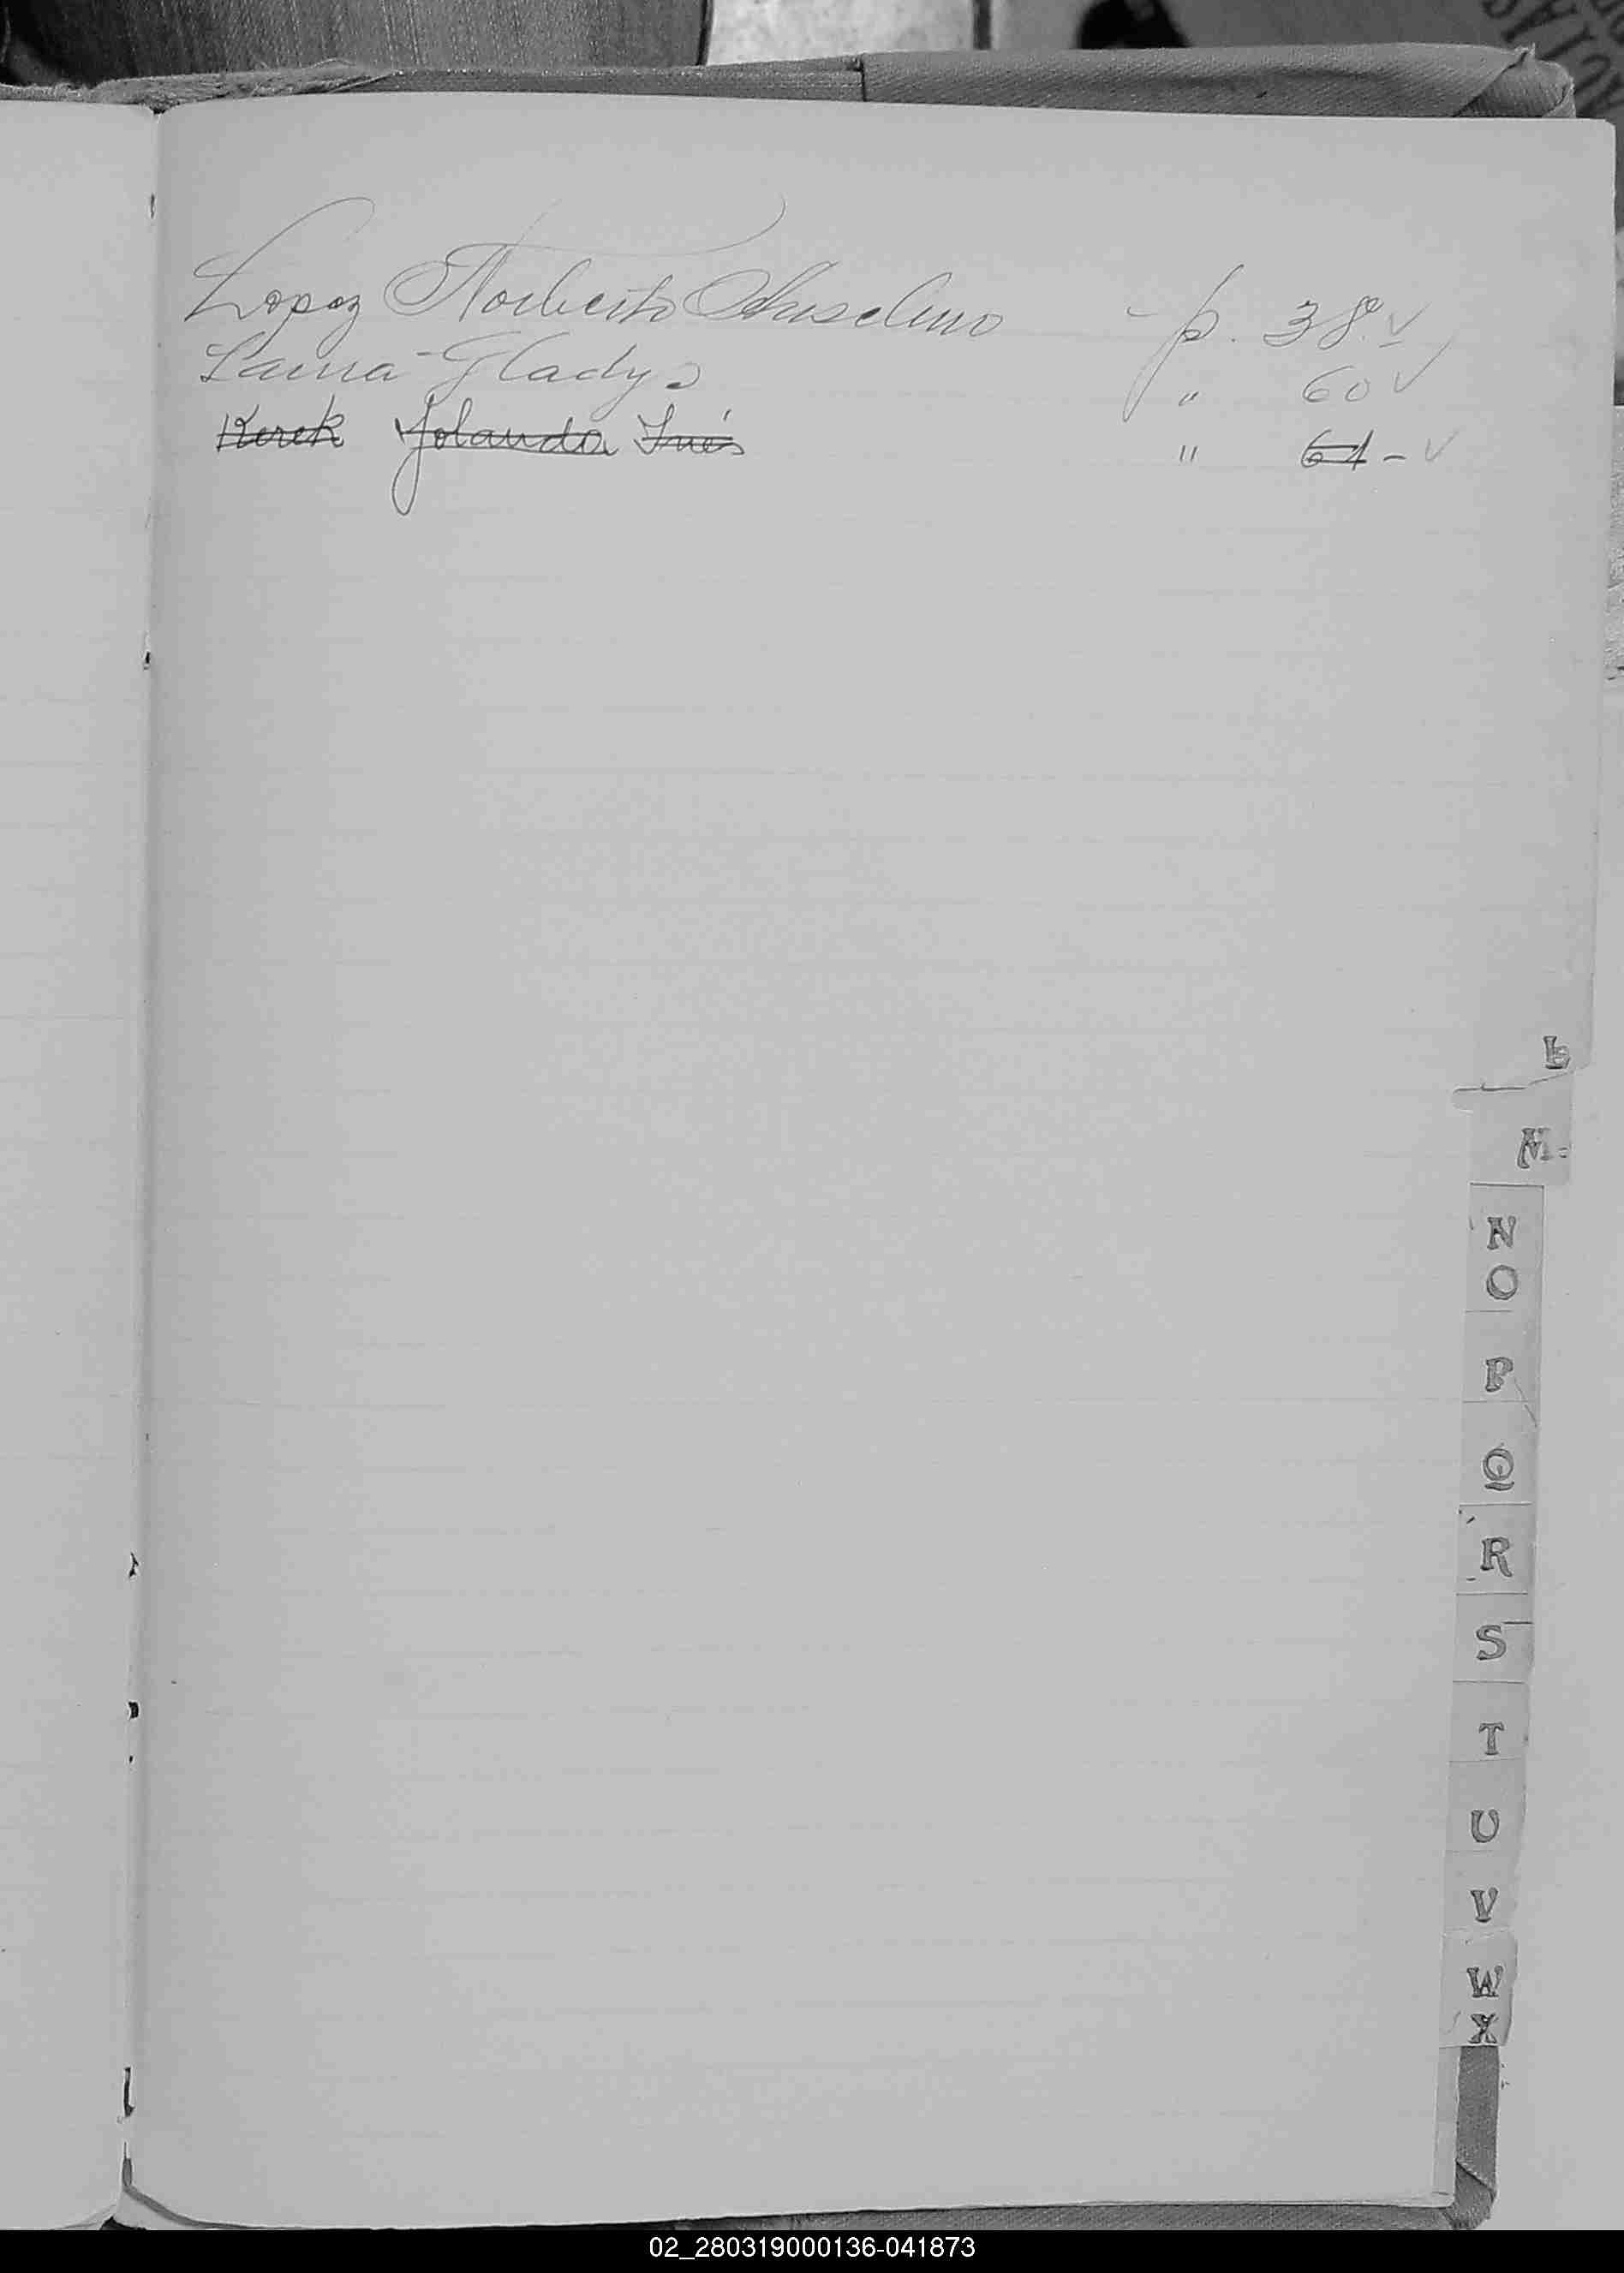 Lopez Norberto Anselmo - p. 38. ✓
Gladys " 60 ✓
Kerek Yolanda Inés " 61 - ✓
L
M
N
O
P
Q
R
S
T
U
V
W
X
02_280319000136-041873